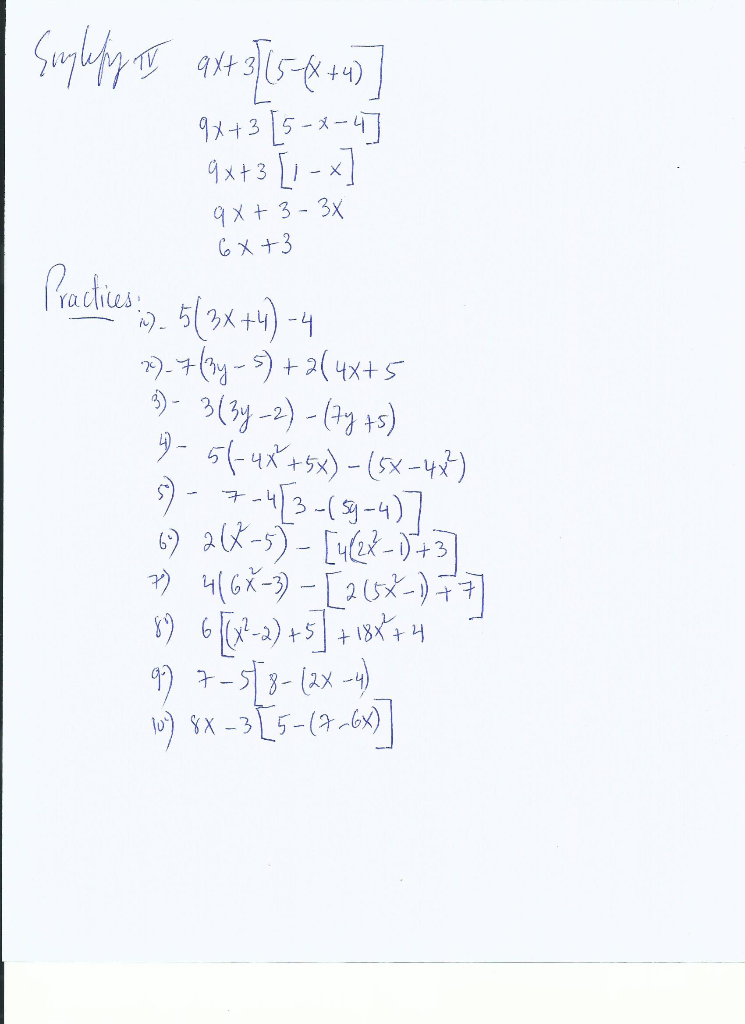 Simplify IV 9x+3[(5-(x+4)]
9x+3[5-x-4]
9x+3[1-x]
9x+3-3x
6x+3
Practices:
1)- 5(3x+4)-4
2)- 7(3y-5)+2(4x+5
3)- 3(3y-2)-(7y+5)
4)- 5(-4x²+5x)-(5x-4x²)
5)- 7-4[3-(5y-4)]
6) 2(x²-5)-[4(2x²-1)+3]
7) 4(6x²-3)-[2(5x²-1)+7]
8) 6[(x²-2)+5]+18x²+4
9) 7-5[8-(2x-4)
10) 8x-3[5-(7-6x)]